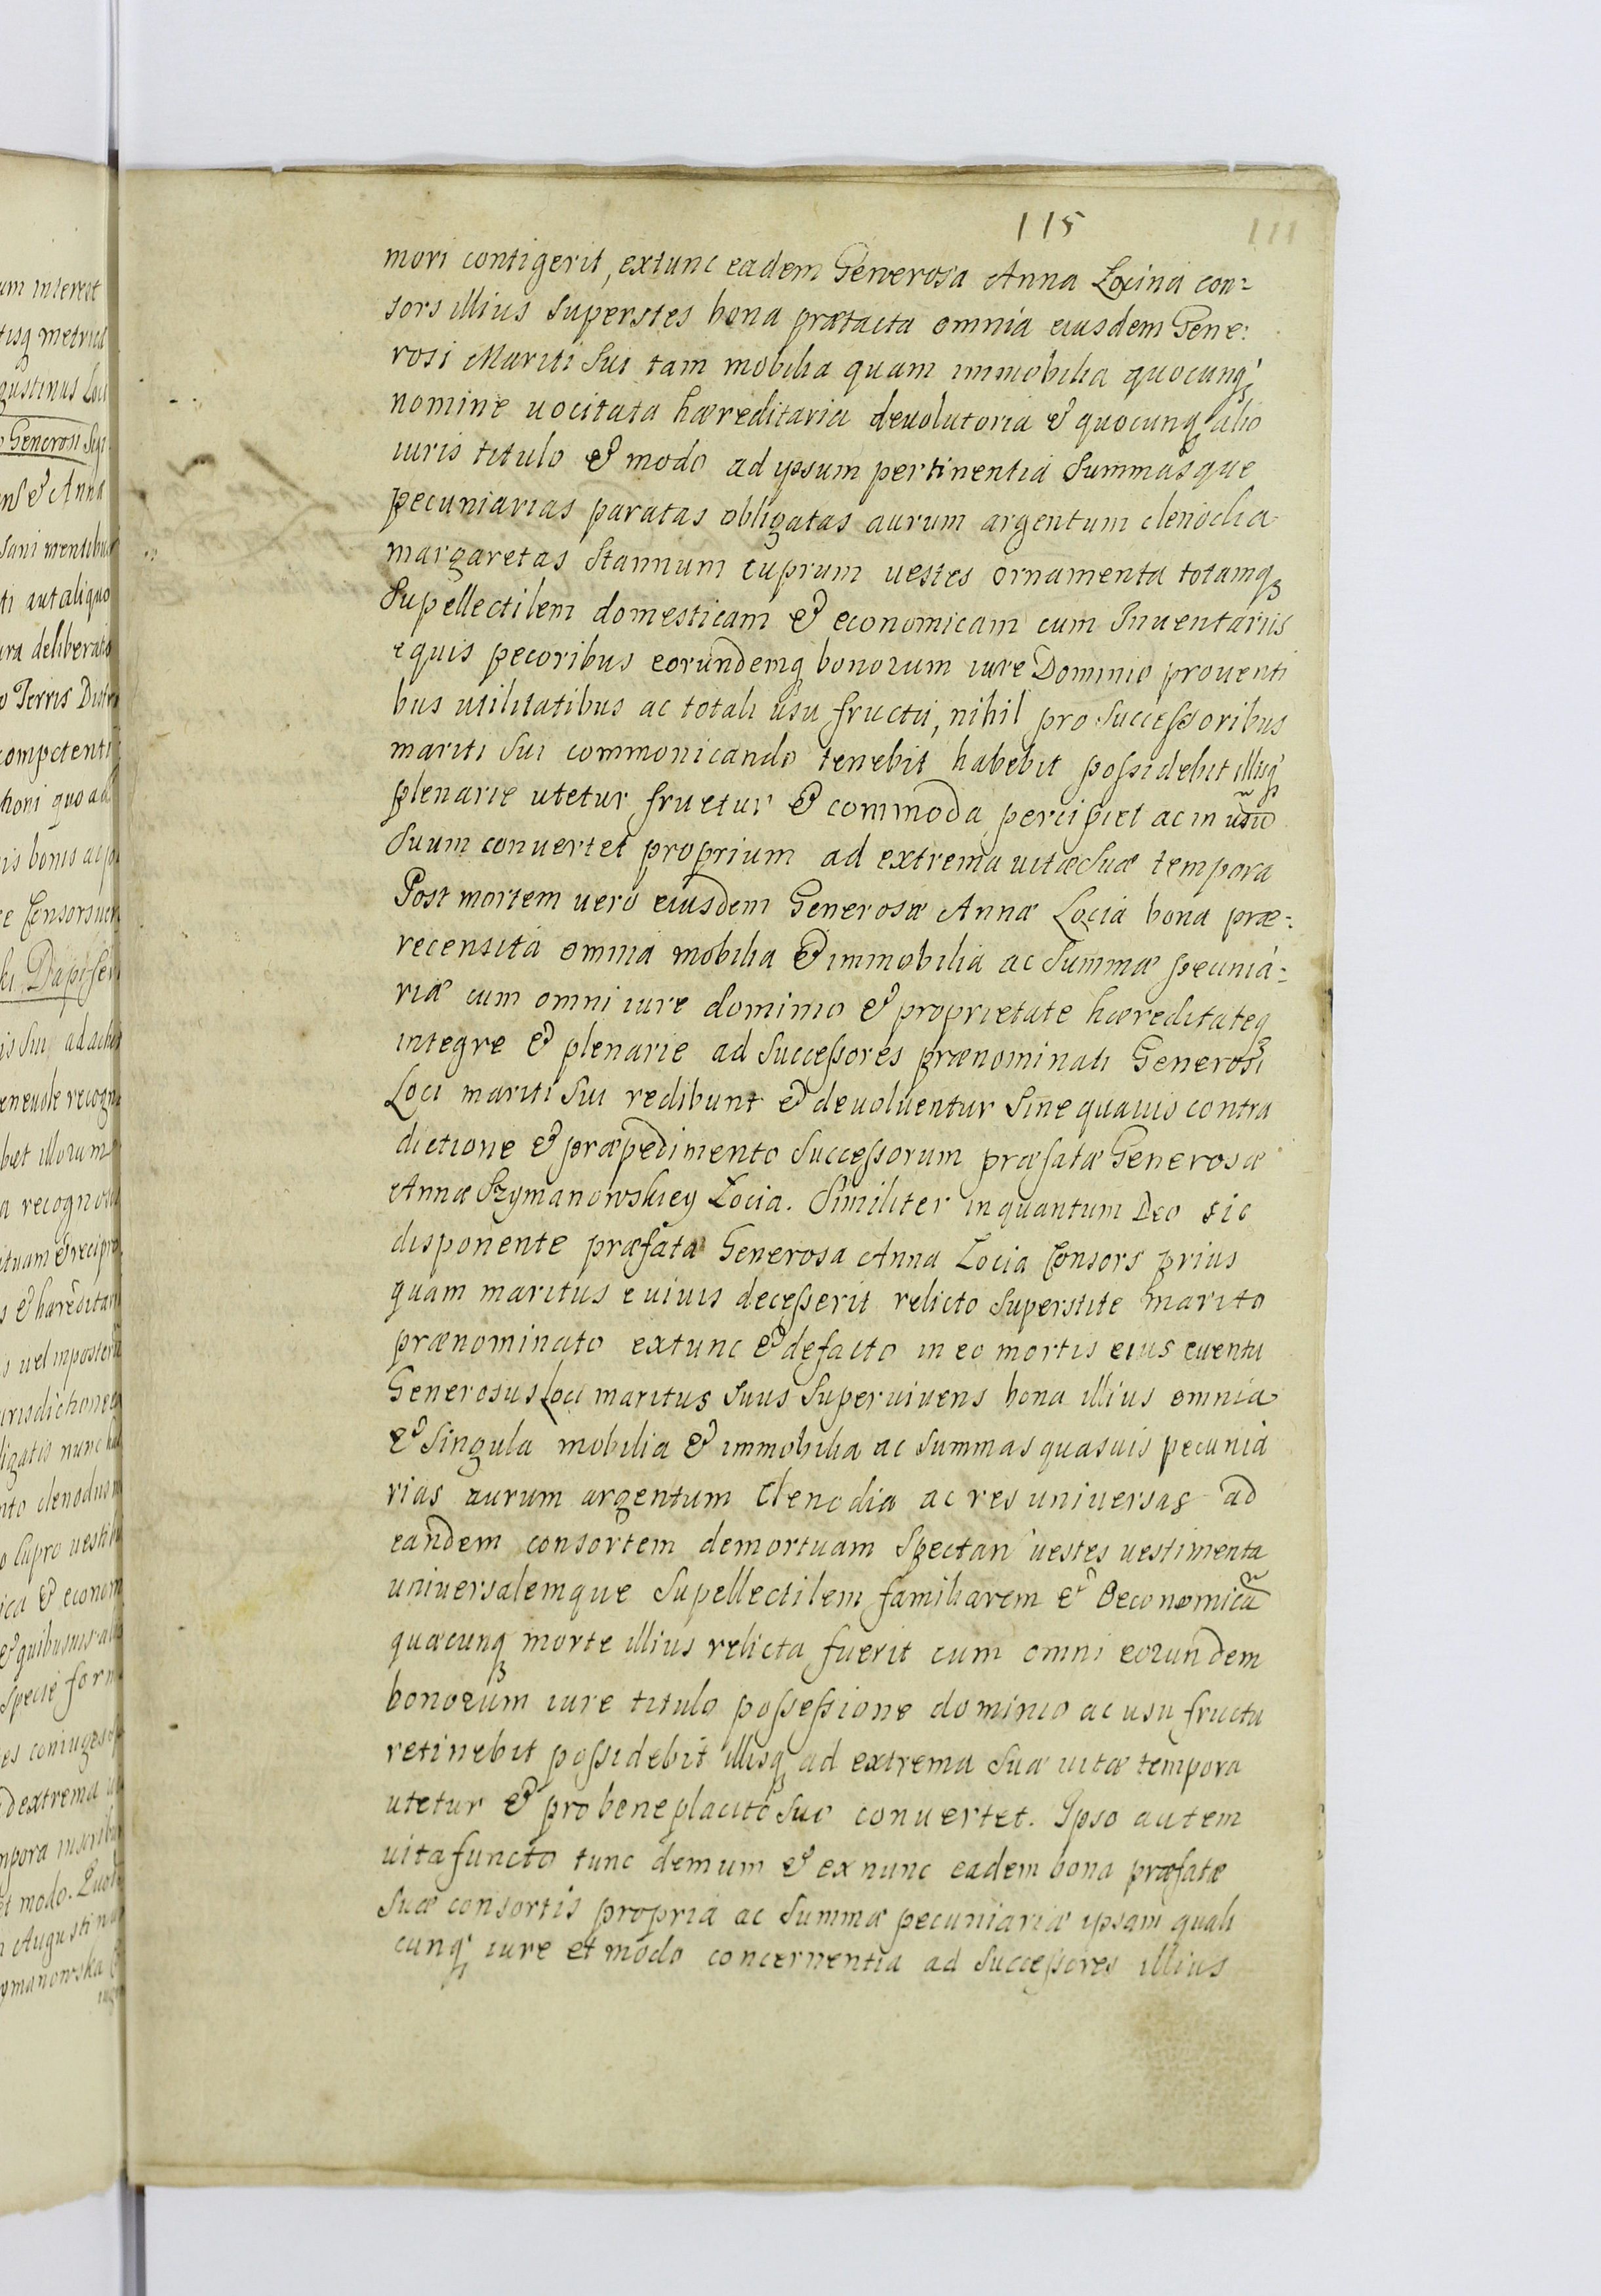 115
111
mori contigerit, extunc eadem Generosa Anna Locina con=
sors illius superstes bona prætacta omnia eiusdem Gene:
rosi Mariti sui tam mobilia quam immobilia quocunq
nomine uocitata hæreditaria deuolutoria & quocunq alio
iuris titulo & modo ad ipsum pertinentia summasque
pecuniarias paratas obligatas aurum argentum clenodia
margaretas stannum cuprum uestes ornamenta totamq
supellectilem domesticam & economicam cum Inuentariis
equis pecoribus eorundemq bonorum iure Dominio prouenti
bus utilitatibus ac totali usu fructu, nihil pro successoribus
mariti sui commonicando tenebit habebit possidebit illisq
plenarie utetur fruetur & commoda percipiet ac in usũ
suum conuertet proprium ad extrema uitæ suæ tempora
Post mortem uero eiusdem Generosæ Annæ Locia bona præ=
recensita omnia mobilia & immobilia ac summæ pecunia=
riæ cum omni iure dominio & proprietate hæreditateq
integre & plenarie ad successores prænominati Generosi
Loci mariti sui redibunt & deuoluentur sine quauis contra
dictione & præpedimento successorum præfatæ Generosæ
Annæ Szymanowskiey Locia. Similiter inquantum Deo sic
disponente præfata Generosa Anna Locia Consors prius
quam maritus e uiuis decesserit relicto superstite marito
prænominato extunc & defacto in eo mortis eius euentu
Generosus Loci maritus suus superuiuens bona illius omnia
& singula mobilia & immobilia ac summas quasuis pecunia
rias aurum argentum clenodia ac res uniuersas ad
eandem consortem demortuam spectan uestes uestimenta
uniuersalemque supellectilem familiarem & Oeconomicã
quæcunq morte illius relicta fuerit cum omni eorundem
bonorum iure titulo possessione dominio ac usu fructu
retinebit possidebit illisq ad extrema suæ uitæ tempora
utetur & pro beneplacito suo conuertet. Ipso autem
uita functo tunc demum & ex nunc eadem bona præfatæ
suæ consortis propria ac summæ pecuniariæ ipsam quali
cunq iure et modo concernentia ad successores illius